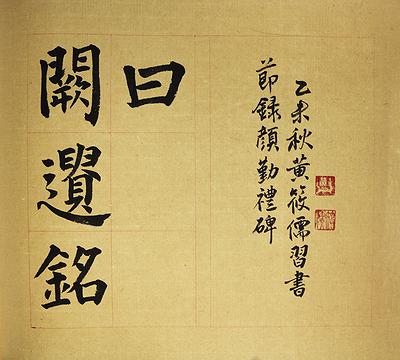 闕遺銘
曰
節録顏勤禮碑
乙未秋黃筱儒習書